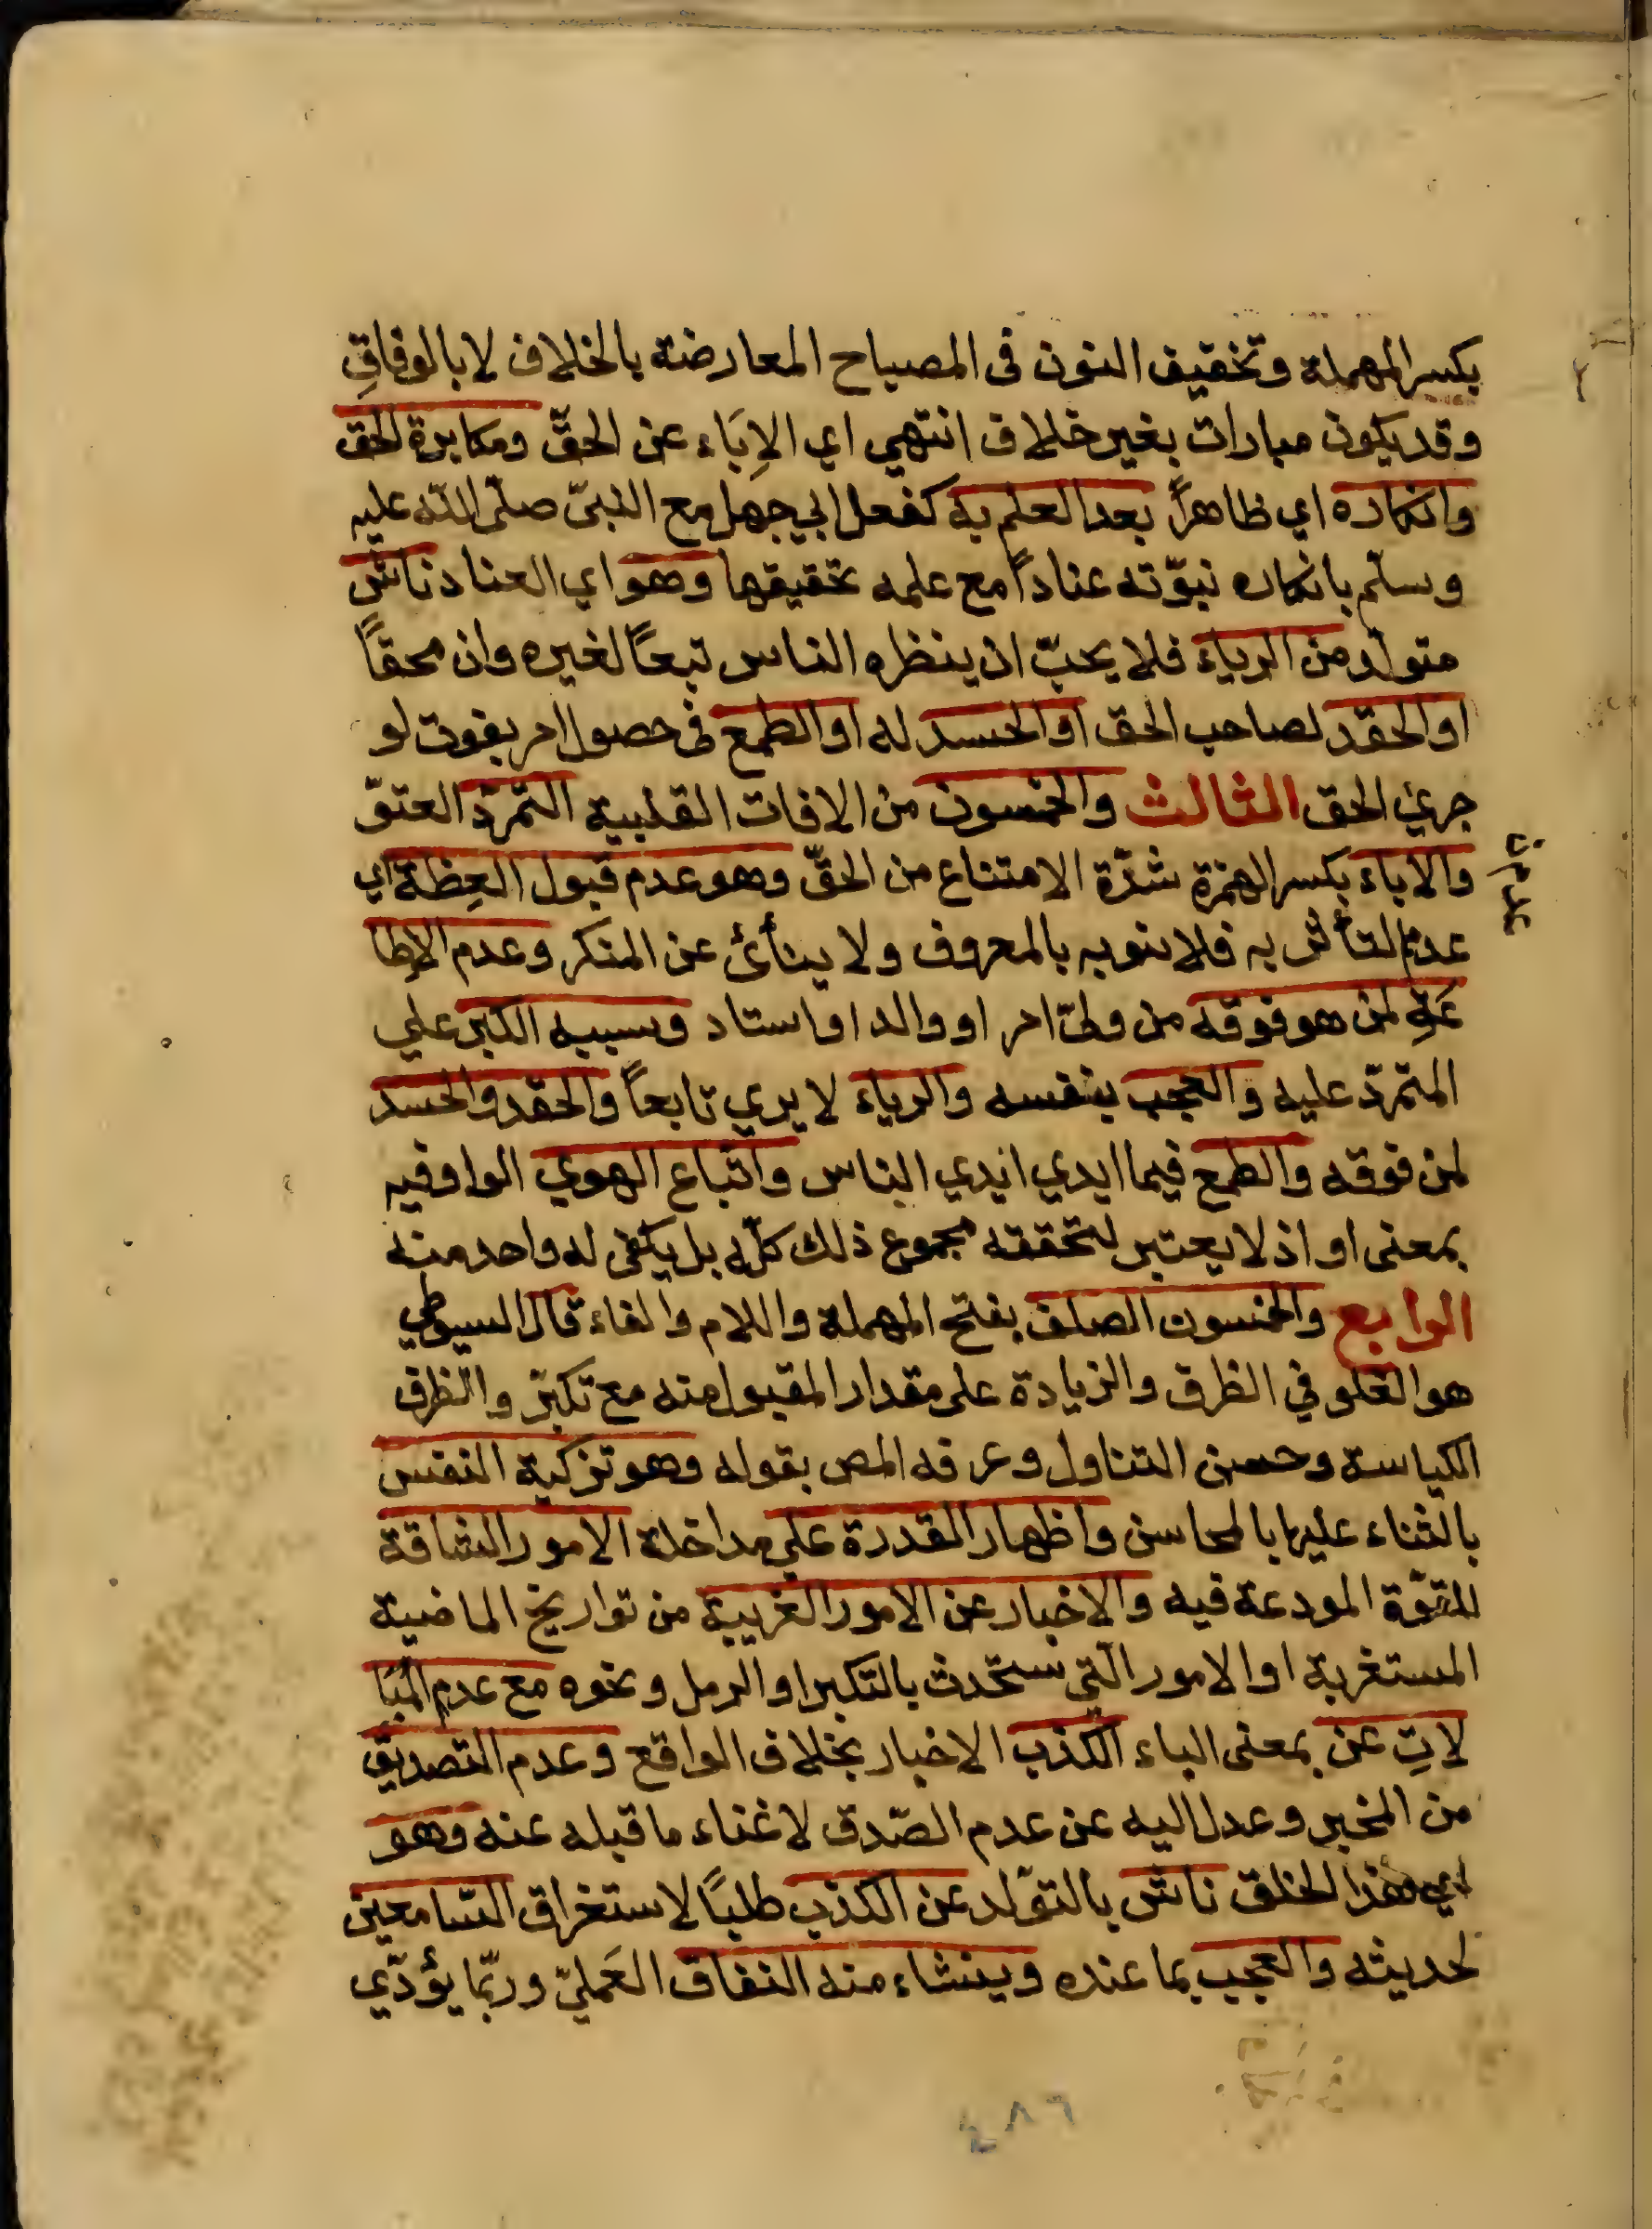 بكسر المهملة وتخفيف النون فى المصباح المعارضة بالخلاف لا بالوفاقِ
وقد يكون مبارات بغير خلاف انتهي اي الاِبَاء عن الحقّ ومكابرة الحق
وانكاره اي ظاهراً بعد العلم به كفعل ابي جهل مع النبىّ صلّى اللّه عليه
وسلّم بانكاره نبوّته عناداً مع علمه بحقيقها وهو اي العناد ناش
متولّد من الرياء فلا يحبّ ان ينظره الناس تبعاً لغيره وان محقاً
او الحقد لصاحب الحق او الحسد له او الطمع فى حصول امر يفوت لو
جرئ الحق الثالث والخمسون من الافات القلبية التمرّد العتوّ
والاباء بكسر الهمزة شدّة الامتناع من الحقّ وهو عدم قبول العِظة اي
عدم التأثر به فلا بالمعروف ولا ينأى عن المنكر وعدم الاِطا
عَةِ لمن هو فوقه من ولىّ امر او والد او استاد وسببه الكبر علي
المتمرّد عليه والعجب بنفسه والرياء لا يري تابعاً والحقد والحسد
لمن فوقه والطمع فيما ايدي ايدي الناس واتباع الهوي الواو فيه
بمعنى او اذ لا يعتبر لتحققه مجموع ذلك كلّه بل يكفى له واحد منه
الرابع والخمسون الصلف بفتح المهملة واللام والفاء قال السيوطي
هو الغلو في الظرف والزيادة على مقدار المقبول منه مع تكبّر والظرف
الكياسة وحسن التناول وعرفه المص بقوله وهو تزكية النفس
بالثناء عليها بالمحاسن واظهار المقدرة على مداخلة الامور الشاقة
للقوّة المودعة فيه والاخبار عن الامور الغريبة من تواريخ الماضية
المستغربة او الامور الّتي ستحدث بالتكبر او الرمل ونحوه مع عدم المُبَا
لاتِ عن بمعنى الباء الكذب الاخبار بخلاف الواقع وعدم التصديق
من المخبر وعدل اليه عن عدم الصّدق لاغناء ما قبله عنه وهو
اي هذا الخلق ناش بالتوّلد عن الكذب طلبًا لاستغراق السّامعين
لحديثه والعجب بما عنده وينشاء منه النفاق العَمليّ وربّما يؤدّي
٤٨٦